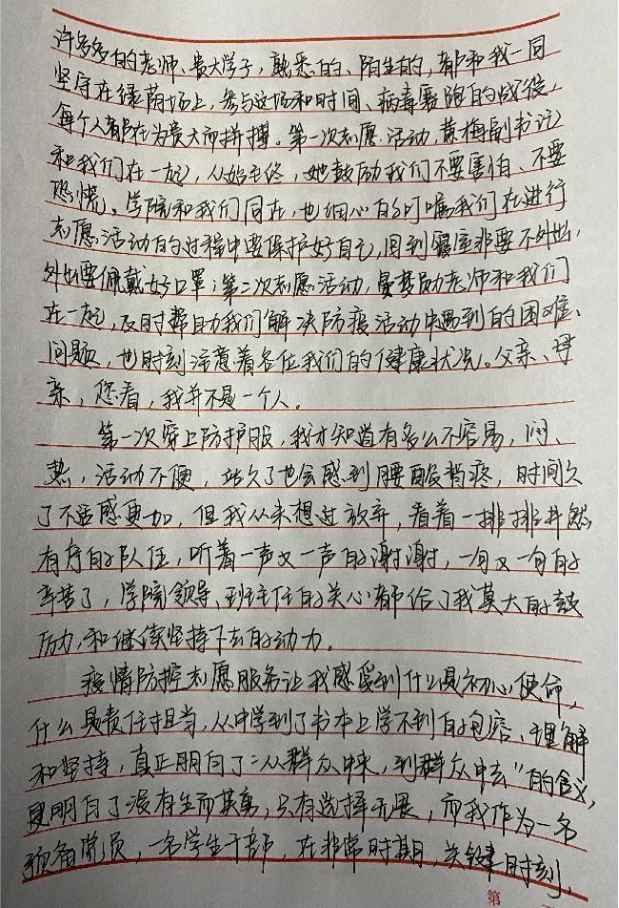 许多多的老师、贵大学子，熟悉的、陌生的，都和我一同
坚守在绿荫场上，参与这场和时间、病毒赛跑的战役，
每个人都在为贵大而拼搏。第一次志愿活动，黄梅副书记
和我们在一起，从始至终，她鼓励我们不要害怕、不要
恐慌，学院和我们同在，也细心的叮嘱我们在进行
志愿活动的过程中要保护好自己，回到寝室非要不外出，
外出要佩戴好口罩；第二次志愿活动，曼梦励老师和我们
在一起，及时帮助我们解决防疫活动中遇到的困难、
问题，也时刻注意着各位我们的健康状况。父亲、母
亲，您看，我并不是一个人。
第一次穿上防护服，我才知道有多么不容易，闷、
热，活动不便，站久了也会感到腰酸背疼，时间久
了不适感更加，但我从未想过放弃，看着一排排井然
有序的队伍，听着一声又一声的谢谢，一句又一句的
辛苦了，学院领导、班主任的关心都给了我莫大的鼓
励，和继续坚持下去的动力。
疫情防控志愿服务让我感受到什么是初心使命，
什么是责任担当，从中学到了书本上学不到的包容、理解
和坚持，真正明白了“从群众中来，到群众中去”的含义，
更明白了没有生而英勇，只有选择无畏，而我作为一名
预备党员，一名学生干部，在非常时期，关键时刻，
第